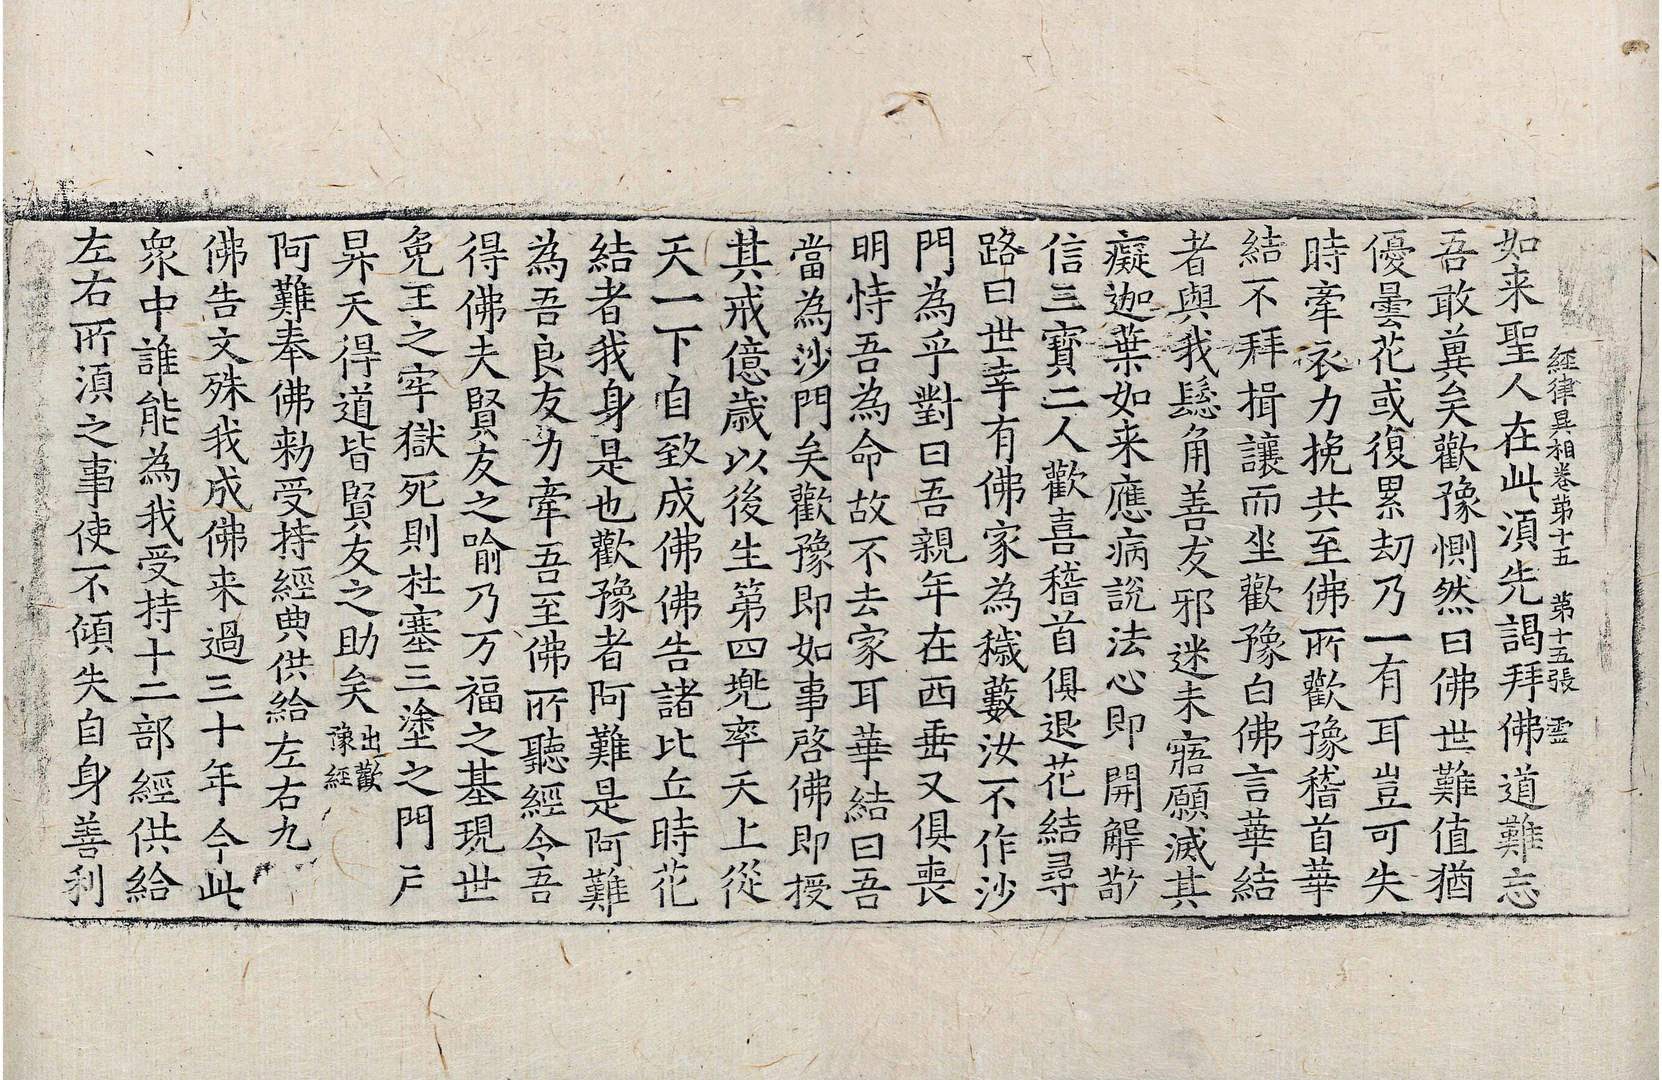 經律異相卷苐十五 第十五張 霊
如来聖人在此湏先謁拜佛道難忘
吾敢兾矣歡豫惻然曰佛世難值猶
優曇花或復累劫乃一有耳豈可失
時牽衣力挽共至佛所歡豫稽首華
結不拜揖讓而坐歡豫白佛言華結
者與我髫角善友邪迷未寤願滅其
癡迦葉如来應病說法心即開解敬
信三寶二人歡喜稽首俱退花結尋
路曰世幸有佛家為穢藪汝不作沙
門為乎對曰吾親年在西垂又俱喪
明恃吾為命故不去家耳華結曰吾
當為沙門矣歡豫即如事啓佛即授
其戒億歳以後生第四兠率天上從
天一下自致成佛佛告諸比丘時花
結者我身是也歡豫者阿難是阿難
為吾良友力牽吾至佛所聽經今吾
得佛夫賢友之喻乃万福之基現世
免王之牢獄死則杜塞三塗之門戶
昇天得道皆賢友之助矣出歡豫經
阿難奉佛勑受持經典供給左右九
佛告文殊我成佛来過三十年今此
衆中誰能為我受持十二部經供給
左右所湏之事使不傾失自身善利